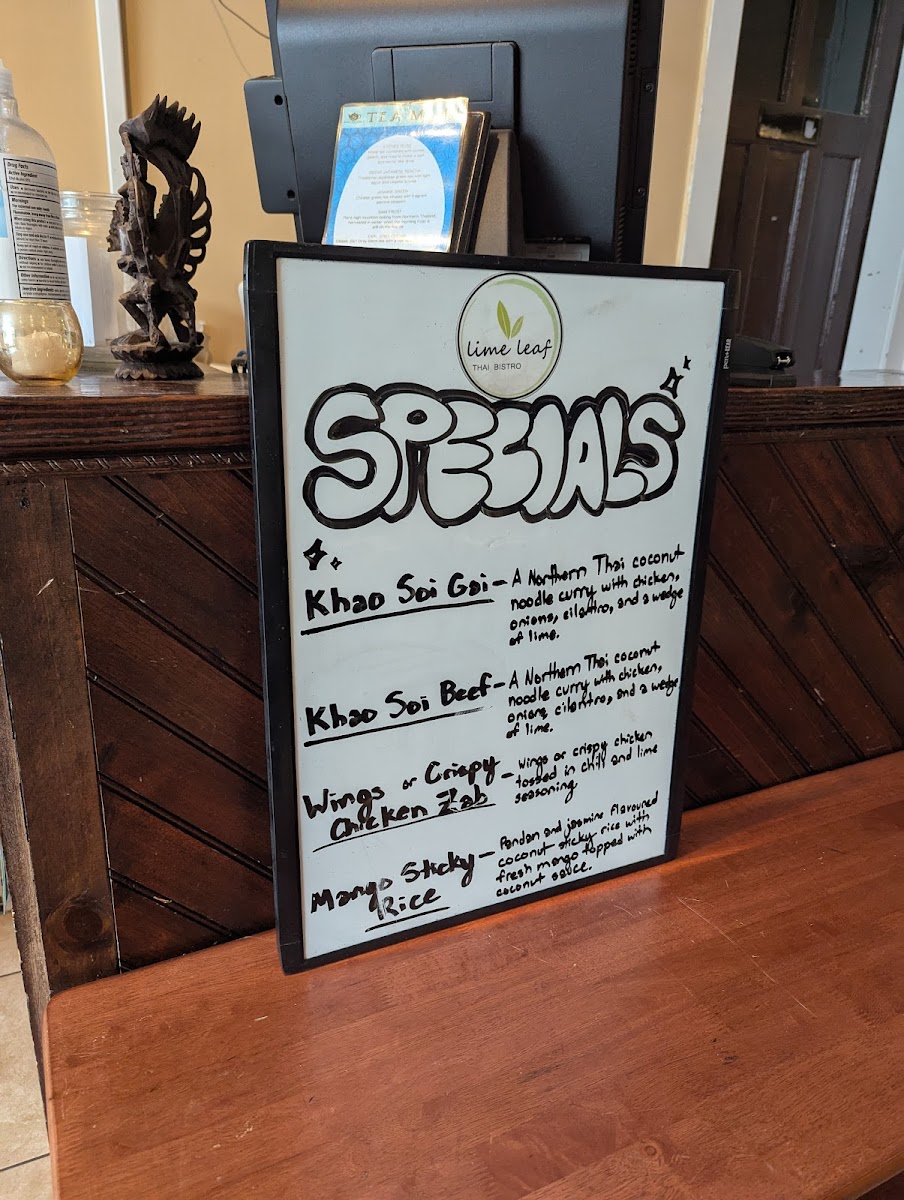 TEA M
Drug Facts
lime leaf
THAI BISTRO
SPECIALS
Khao Soi Gai - A Northern Thai coconut
noodle curry with chicken,
onions, cilantro, and a wedge
of lime.
Khao Soi Beef - A Northern Thai coconut
noodle curry with chicken,
onions, cilantro, and a wedge
of lime.
Wings or Crispy
Chicken Zab - wings or crispy chicken
tossed in chili and lime
seasoning
Mango Sticky
Rice - Pandan and jasmine flavoured
coconut sticky rice with
fresh mango topped with
coconut sauce.